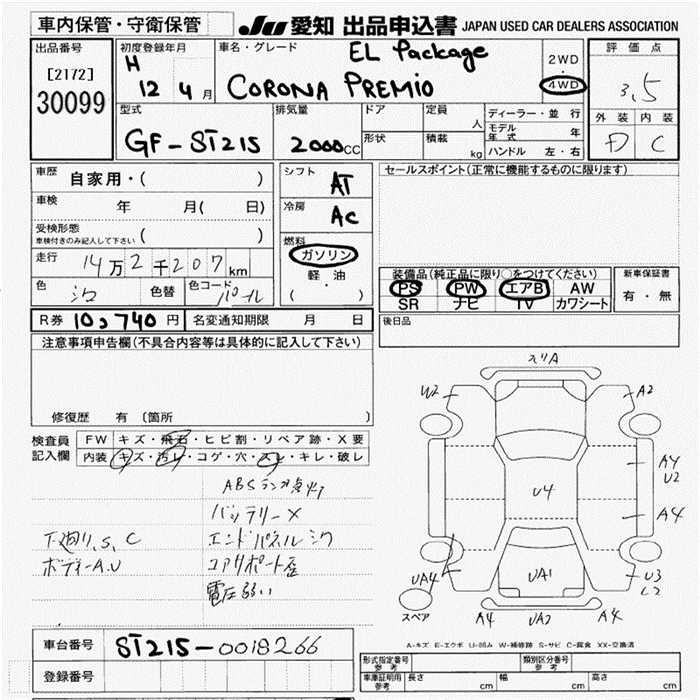 車内保管・守衛保管
JU 愛知 出品申込書 JAPAN USED CAR DEALERS ASSOCIATION
出品番号
[2172]
30099
初度登録年月
H 12 4月
車名・グレード
EL Package
CORONA PREMIO
2WD
・
4WD
評価点
3,5
外装 内装
D C
型式
GF-ST215
排気量
2000cc
ドア
形状
定員
人
積載
kg
ディーラー・並行
モデル年式 年
ハンドル 左・右
車歴 自家用・( )
車検 年 月( 日)
受検形態
車検付きのみ記入して下さい ( )
走行 14万2千207km
色 色替 色コード パール
シフト AT
冷房 AC
燃料
ガソリン
軽油
( ・ )
R券 10,740円 名変通知期限 月 日
セールスポイント(正常に機能するものに限ります)
装備品(純正品に限り○をつけてください)
PS PW エアB AW
SR ナビ TV カワシート
新車保証書
有・無
後日品
注意事項申告欄(不具合内容等は具体的に記入して下さい)
修復歴 有 〔箇所
検査員
記入欄
FW キズ・飛石・ヒビ割・リペア跡・X要
内装 キズ・汚レ・コゲ・穴・スレ・キレ・破レ
ABSランプ点灯
バッテリーX
下廻り、S、C エンドパネル
ボディーA.U コアサポート歪
電圧弱い
スリA
W2 A2
A4
U2
U4
A4
UA4 UA1 U3
スペア A4 UA2 A4
A-キズ E-エクボ U-凹み W-補修跡 S-サビ C-腐食 XX-交換済
車台番号 ST215-0018266
登録番号
形式指定番号
参考
類別区分番号
参考
車庫証明用
参考
長さ cm 幅 cm 高さ cm